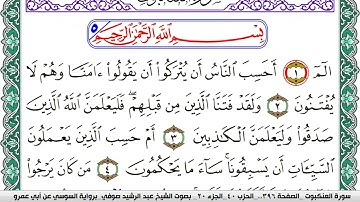 بِسْمِ اللَّهِ الرَّحْمَٰنِ الرَّحِيمِ
الٓمٓ ١ أَحَسِبَ النَّاسُ أَن يُتْرَكُوا أَن يَقُولُوا ءَامَنَّا وَهُمْ لَا
يُفْتَنُونَ ٢ وَلَقَدْ فَتَنَّا الَّذِينَ مِن قَبْلِهِمْ فَلَيَعْلَمَنَّ اللَّهُ الَّذِينَ
صَدَقُوا وَلَيَعْلَمَنَّ الْكَاذِبِينَ ٣ أَمْ حَسِبَ الَّذِينَ يَعْمَلُونَ
السَّيِّـَٔاتِ أَن يَسْبِقُونَا سَآءَ مَا يَحْكُمُونَ ٤ مَن كَانَ يَرْجُوا
سورة العنكبوت .. الصفحة ٣٩٦ .. الحزب ٤٠ .. الجزء ٢٠ .. بصوت الشيخ عبد الرشيد صوفي .. برواية السوسي عن أبي عمرو